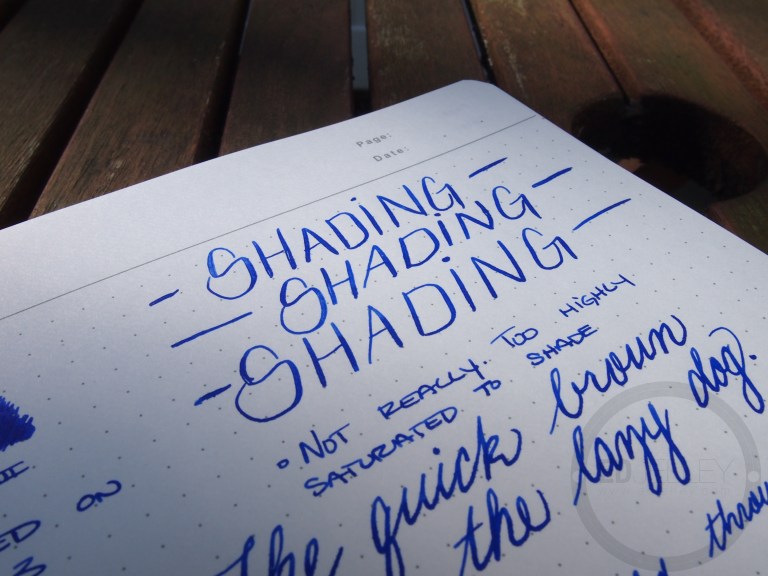 Page:
Date:
- SHADING -
- SHADING -
- SHADING -
• NOT REALLY. TOO HIGHLY
SATURATED TO SHADE
The quick brown
the lazy dog.
II
ED ON
3